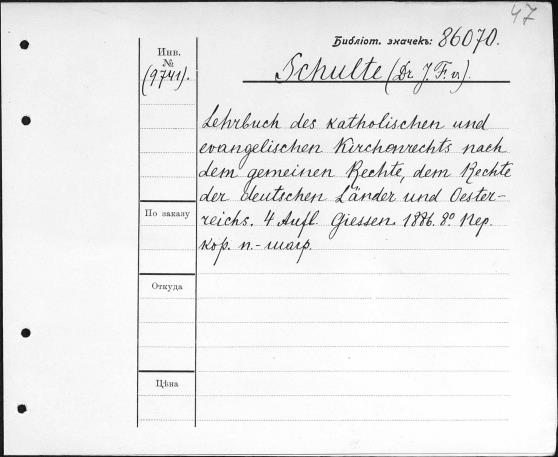 47
Библіот. значекъ: 86070.
Инв.
№
(9741).
Schulte (Dr. J. F. v.)
Lehrbuch des katholischen und
evangelischen Kirchenrechts nach
dem gemeinen Rechte, dem Rechte
der deutschen Länder und Oester-
reichs. 4 Aufl. Giessen. 1886. 8º Пер.
кор. п.-шагр.
По заказу
Откуда
Цѣна